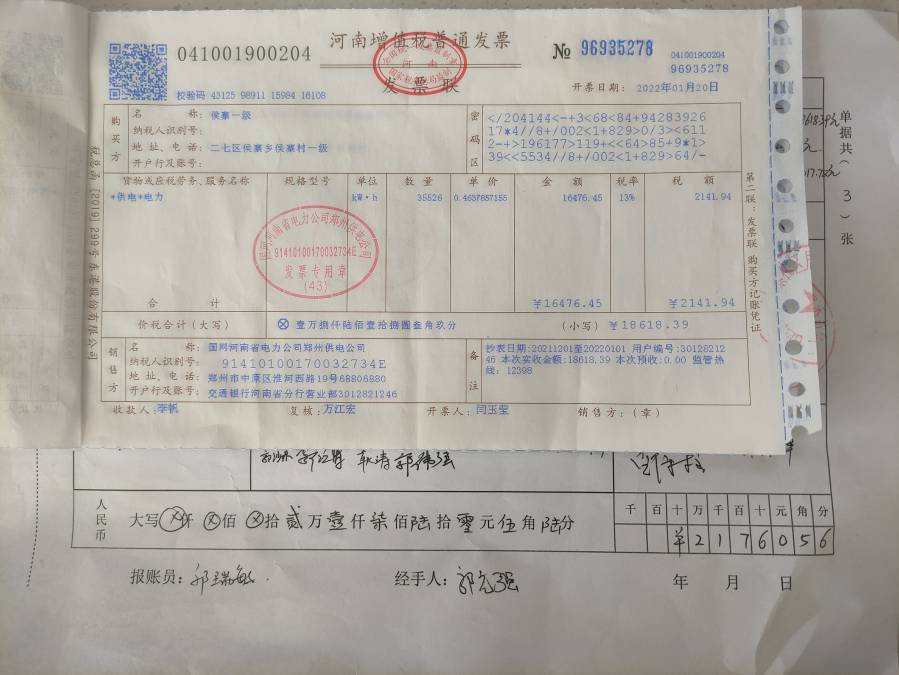 041001900204
河南增值税普通发票
发票联
№ 96935278
041001900204
96935278
校验码 43125 98911 15984 16108
开票日期： 2022年01月20日
购买方
名 称：侯寨一级
纳税人识别号：
地 址、电 话：二七区侯寨乡侯寨村一级
开户行及账号：
密码区
</204144<-+3<68<84+94283926
17*4//8+/002<1+829>0/3><611
2-+>196177>119+<<64>85+9*1>
39<<5534//8+/002<1+829>64/-
货物或应税劳务、服务名称 规格型号 单位 数 量 单 价 金 额 税率 税 额
*供电*电力 kW·h 35526 0.4637857155 16476.45 13% 2141.94
国网河南省电力公司郑州供电公司
91410100170032734E
发票专用章
(43)
合 计 ¥16476.45 ¥2141.94
价税合计（大写） ⊗ 壹万捌仟陆佰壹拾捌圆叁角玖分 （小写）¥18618.39
销售方
名 称：国网河南省电力公司郑州供电公司
纳税人识别号：91410100170032734E
地 址、电 话：郑州市中原区淮河西路19号68806880
开户行及账号：交通银行河南省分行营业部3012821246
备注
抄表日期:20211201至20220101 用户编号:30128212
46 本次实收金额:18618.39 本次预收:0.00 监管热
线：12398
收款人：李帆 复核：万江宏 开票人：闫玉莹 销售方：（章）
第二联：发票联 购买方记账凭证
单据共（3）张
人民币
大写⊗仟⊗佰⊗拾贰万壹仟柒佰陆拾零元伍角陆分
千 百 十 万 千 百 十 元 角 分
¥ 2 1 7 6 0 5 6
报账员：
经手人：
年 月 日